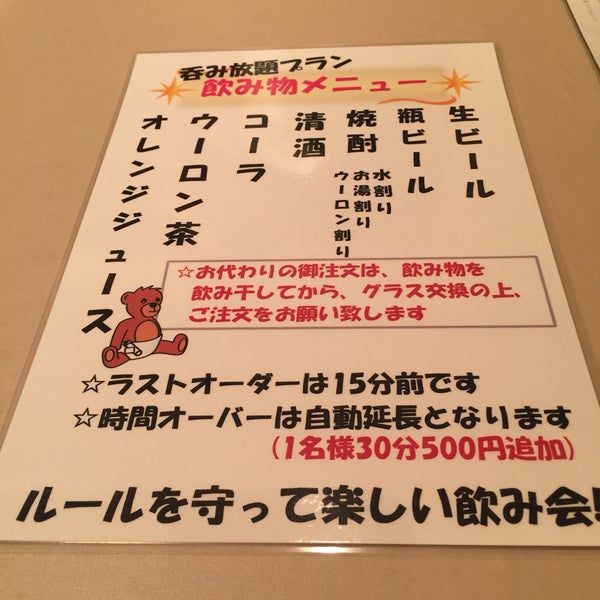 呑み放題プラン
飲み物メニュー
生ビール
瓶ビール
焼酎
水割り
お湯割り
ウーロン割り
清酒
コーラ
ウーロン茶
オレンジジュース
☆お代わりの御注文は、飲み物を
飲み干してから、グラス交換の上、
ご注文をお願い致します
☆ラストオーダーは15分前です
☆時間オーバーは自動延長となります
(1名様30分500円追加)
ルールを守って楽しい飲み会!